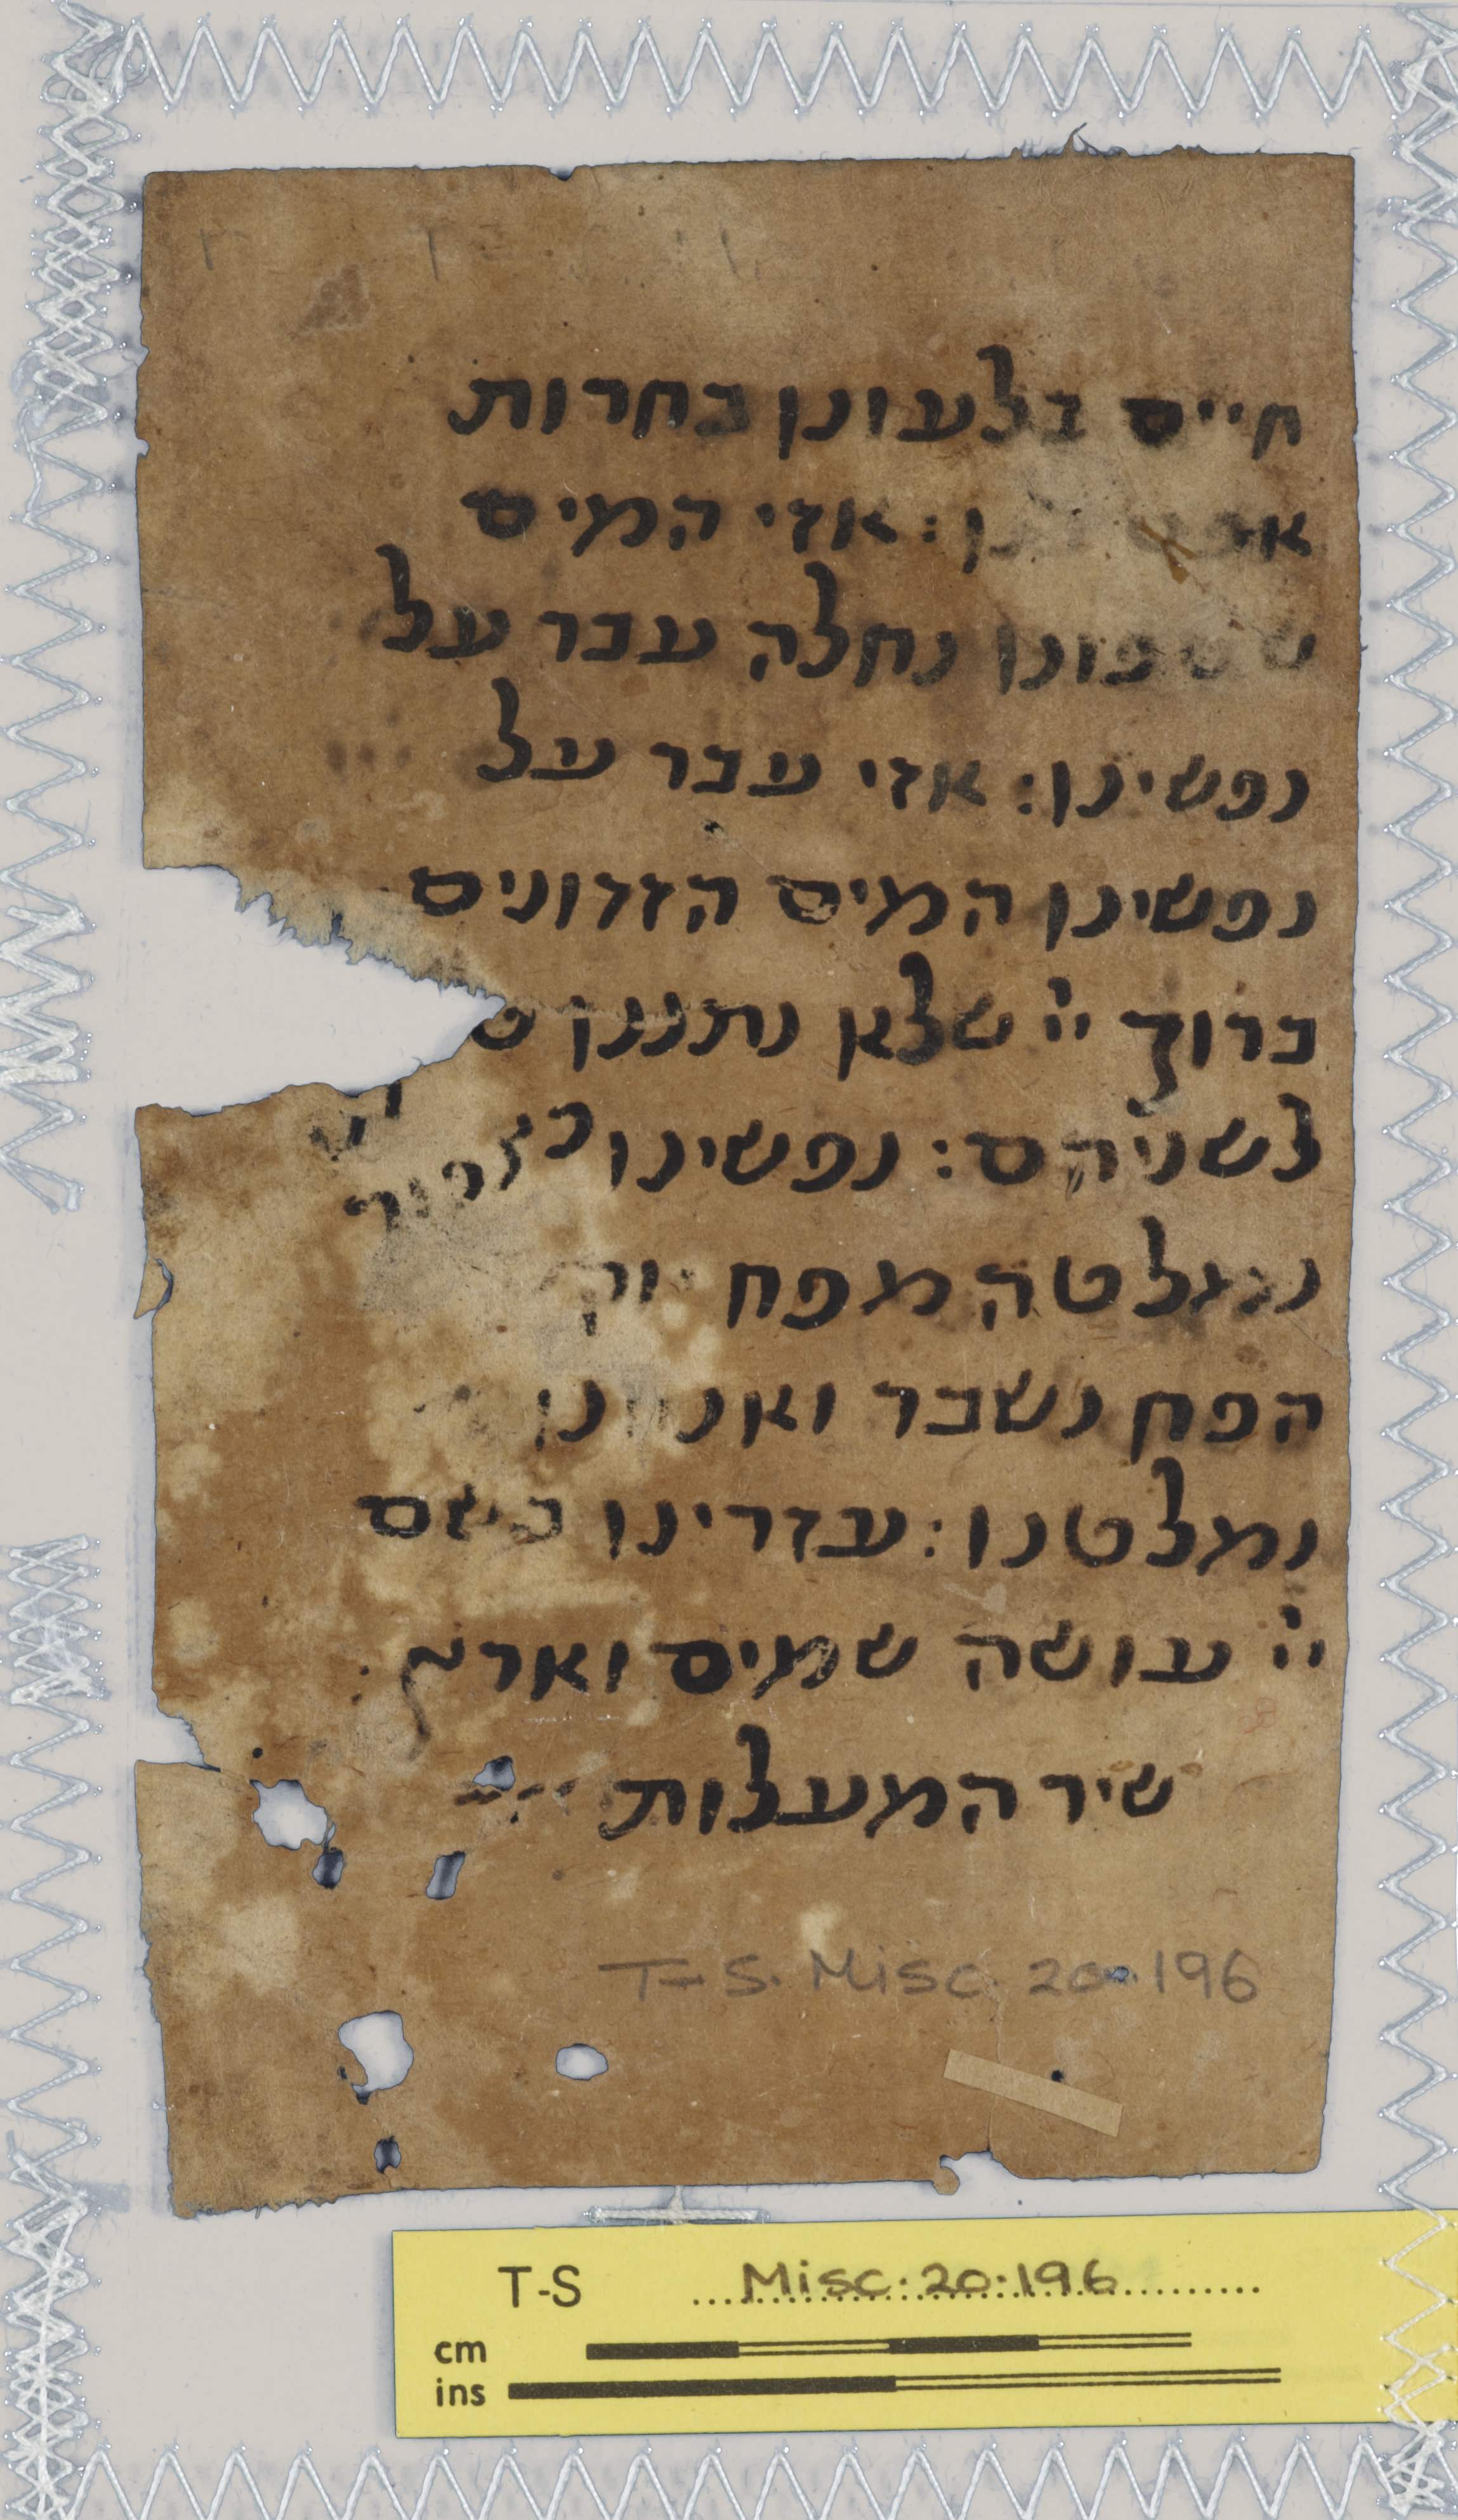 חיים בלעונו בחרות
אזי המים
שטפונו נחלה עבר על
נפשינו: אזי עבר על
נפשינו המים הזדונים
ברוך ייי שלא נתננו
לשניהם: נפשינו כצפור
נמלטה מפח
הפח נשבר ואנחנו
נמלטנו: עזרינו בשם
ייי עושה שמים וארץ:
שיר המעלות
T-S. Misc. 20.196
T-S Misc. 20.196
cm
ins